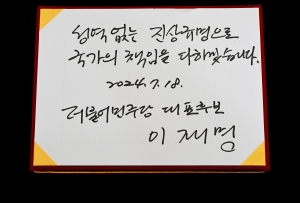 성역없는 진상규명으로
국가의 책임을 다하겠습니다.
2024.7.18.
더불어민주당 대표후보
이재명